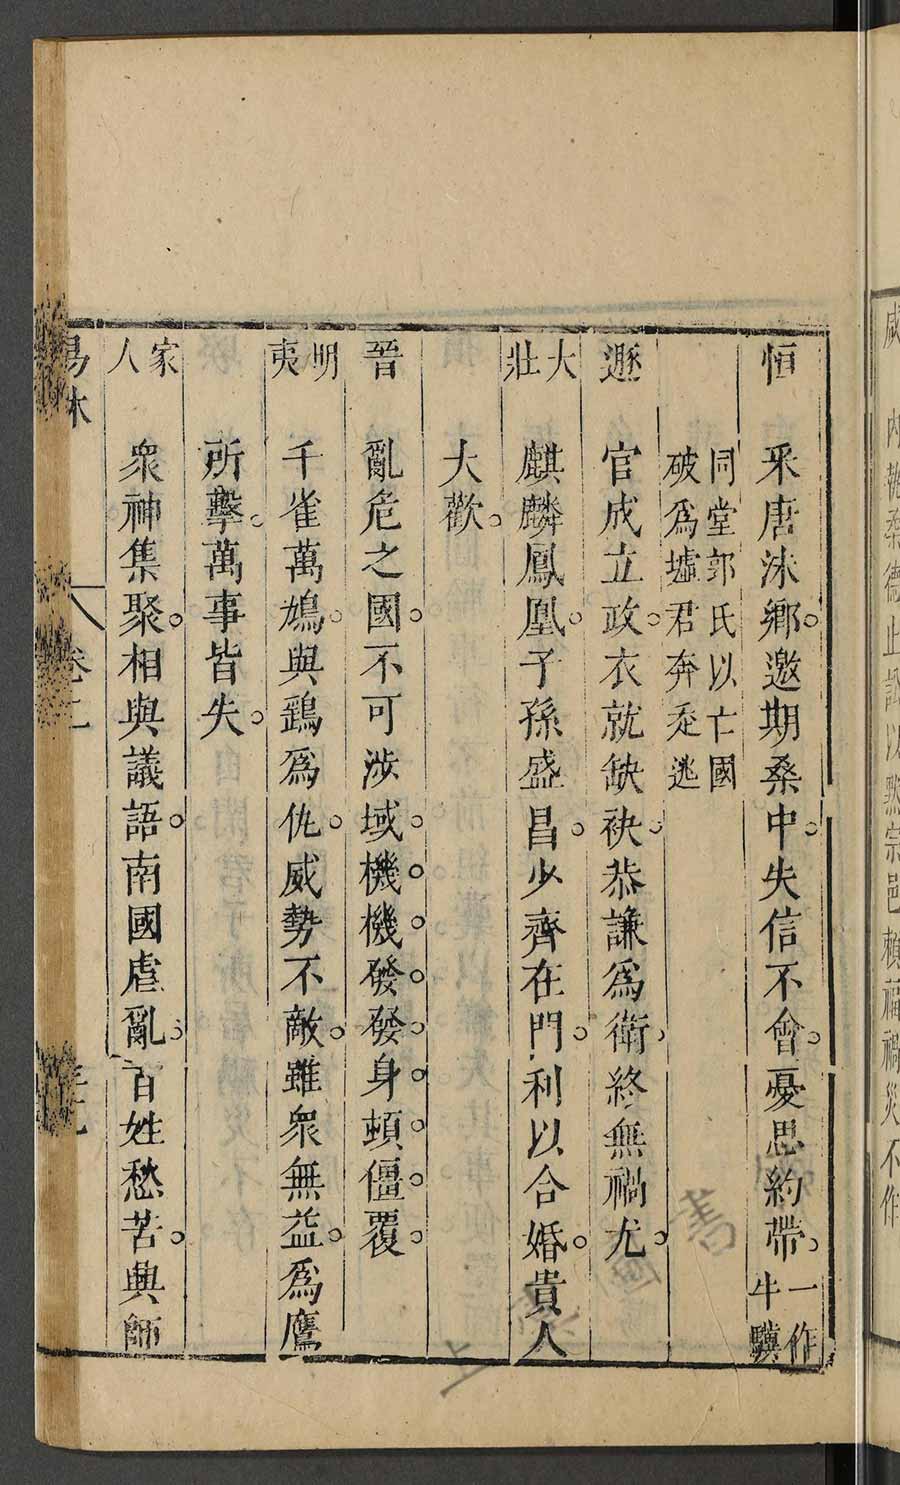 恒 采唐沬鄉。邀期桑中。失信不會。憂思約帶。一作牛驥
同堂郭氏以亡國破爲墟君奔走逃
遯 官成立政。衣就缺袂。恭謙爲衛。終無禍尤。
大壯 麒麟鳳凰。子孫盛昌。少齊在門。利以合婚。貴人
大歡。
晉 亂危之國。不可涉域。機機發發。身頓僵覆。
明夷 千雀萬鳩。與鷂爲仇。威勢不敵。雖衆無益。爲鷹
所擊。萬事皆失。
家人 衆神集聚。相與議語。南國虐亂。百姓愁苦。興師
易林 卷二